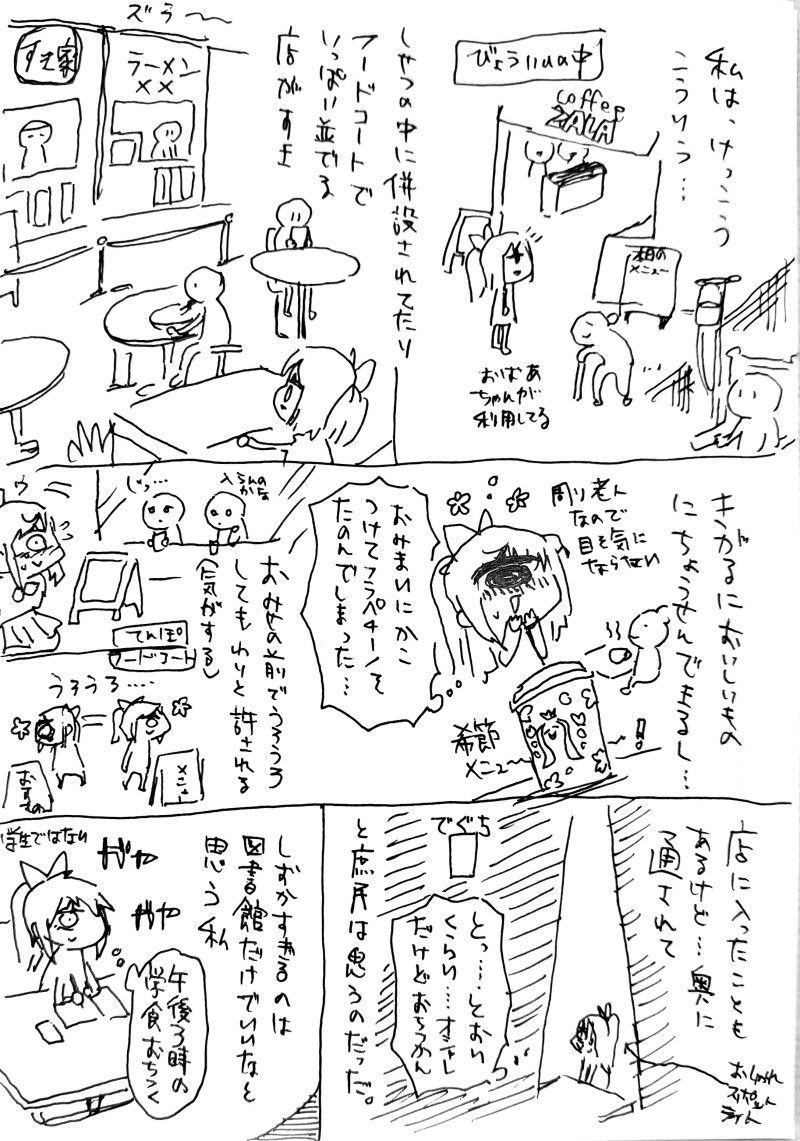 私は、けっこう
こういう…
びょういんの中
coffee
ZALA
本日の
メニュー
おばあ
ちゃんが
利用してる
しせつの中に併設されてたり
フードコートで
いっぱい並でる
店がすき
ズラ〜
ラーメン
××
すき家
きがるにおいしいもの
にちょうせんできるし…
周り老人
なので
目を気に
ならない
おみまいにかこ
つけてフラペチーノを
たのんでしまった…
季節
メニュー
おみせの前でうろうろ
してもわりと許される
(気がする)
入らんの
かな
じっ…
ウ
てんぽ
フードコート
うろうろ……
メニュー
おすすめ
店に入ったことも
あるけど…奥に
通されて
おしゃれ
スポット
ライト
でぐち
とっ…とおい
くらい…オシャレ
だけどおちつかん
と庶民は思うのだった。
しずかすぎるのは
図書館だけでいいなと
思う私
学生ではない
ガヤ
ガヤ
午後3時の
学食おちつく